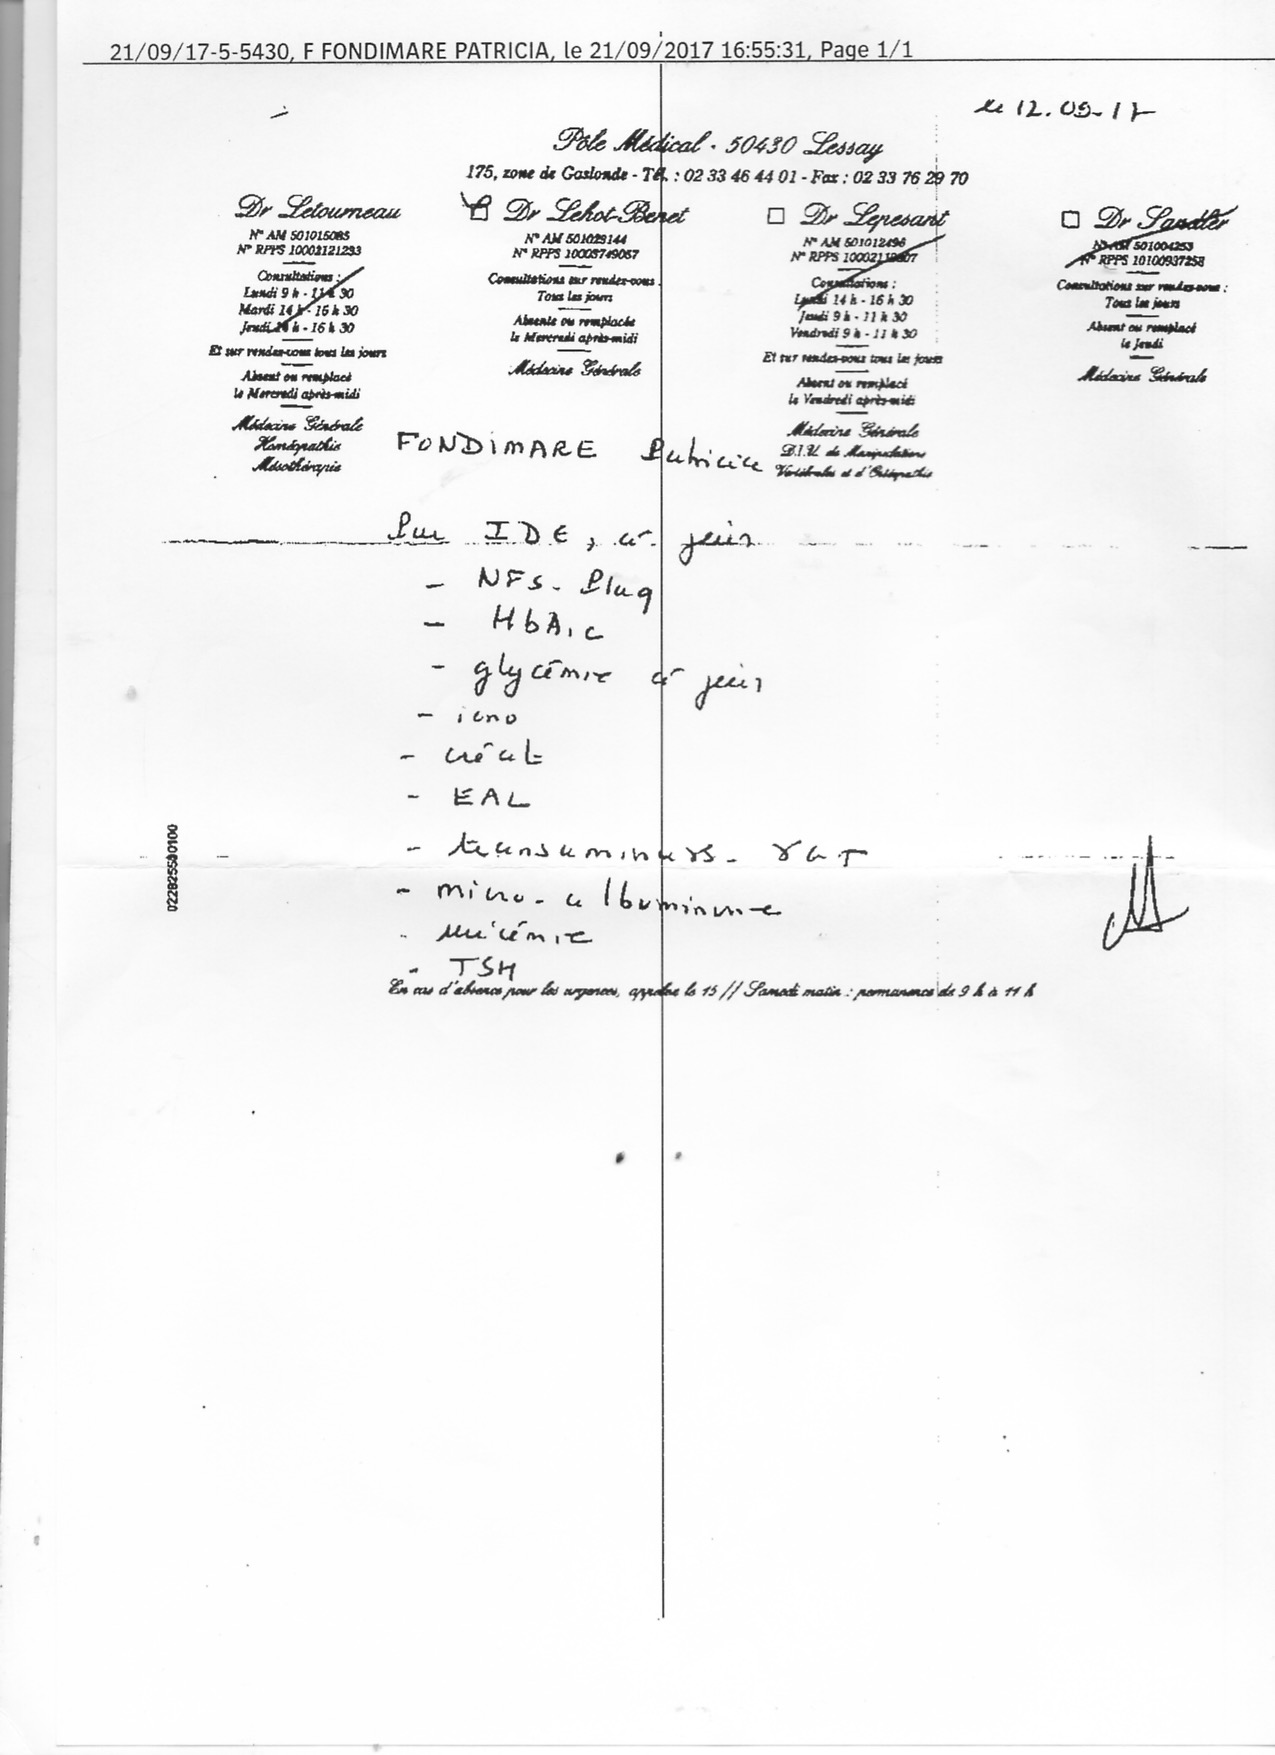 21/09/17-5-5430, F FONDIMARE PATRICIA, le 21/09/2017 16:55:31, Page 1/1
le 12.09.17
Pôle Médical - 50430 Lessay
175, zone de Gaslonde - Tél. : 02 33 46 44 01 - Fax : 02 33 76 29 70
Dr Letourneau
N° AM 501015085
N° RPPS 10002121233
Consultations :
Lundi 9 h - 11 h 30
Mardi 14 h - 16 h 30
Jeudi 14 h - 16 h 30
Et sur rendez-vous tous les jours
Absent ou remplacé
le Mercredi après-midi
Médecine Générale
Homéopathie
Mésothérapie
Dr Lehot-Benet
N° AM 501029144
N° RPPS 10003749067
Consultations sur rendez-vous :
Tous les jours
Absente ou remplacée
le Mercredi après-midi
Médecine Générale
Dr Lepesant
N° AM 501012496
N° RPPS
Consultations :
Lundi 14 h - 16 h 30
Jeudi 9 h - 11 h 30
Vendredi 9 h - 11 h 30
Et sur rendez-vous tous les jours
Absent ou remplacé
le Vendredi après-midi
Médecine Générale
D.I.U. de Manipulations
Vertébrales et d'Ostéopathie
Dr Sandler
N° AM 501004253
N° RPPS 10100937258
Consultations sur rendez-vous :
Tous les jours
Absent ou remplacé
le Jeudi
Médecine Générale
FONDIMARE Patricia
Par IDE, à jeun
- NFS - Plaq
- HbA1c
- glycémie à jeun
- iono
- créat
- EAL
- transaminases - γGT
- micro-albuminurie
- uricémie
- TSH
En cas d'absence pour les urgences, appeler le 15 // Samedi matin : permanence de 9 h à 11 h
0228255680100